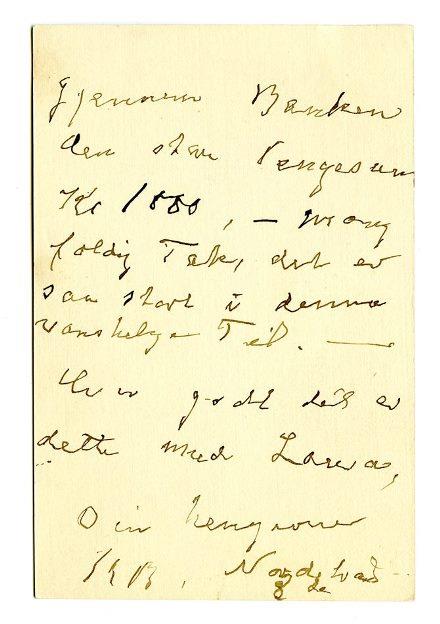 Gjennem Banken
den store Pengesum
Kr 1000, — mang
foldig Tak, det er
saa stort i denne
vanskelige Tid. —
Hvor godt det er
dette med Laura,
Din hengivne